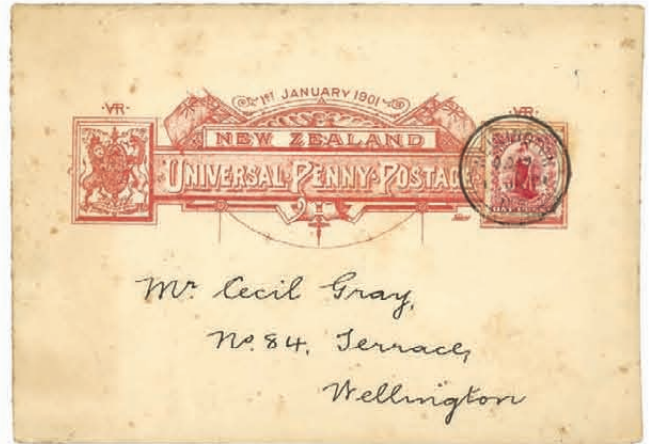 1ST JANUARY 1901
·VR· ·VR·
NEW ZEALAND
UNIVERSAL·PENNY·POSTAGE
Mr Cecil Gray,
No. 84, Terrace,
Wellington